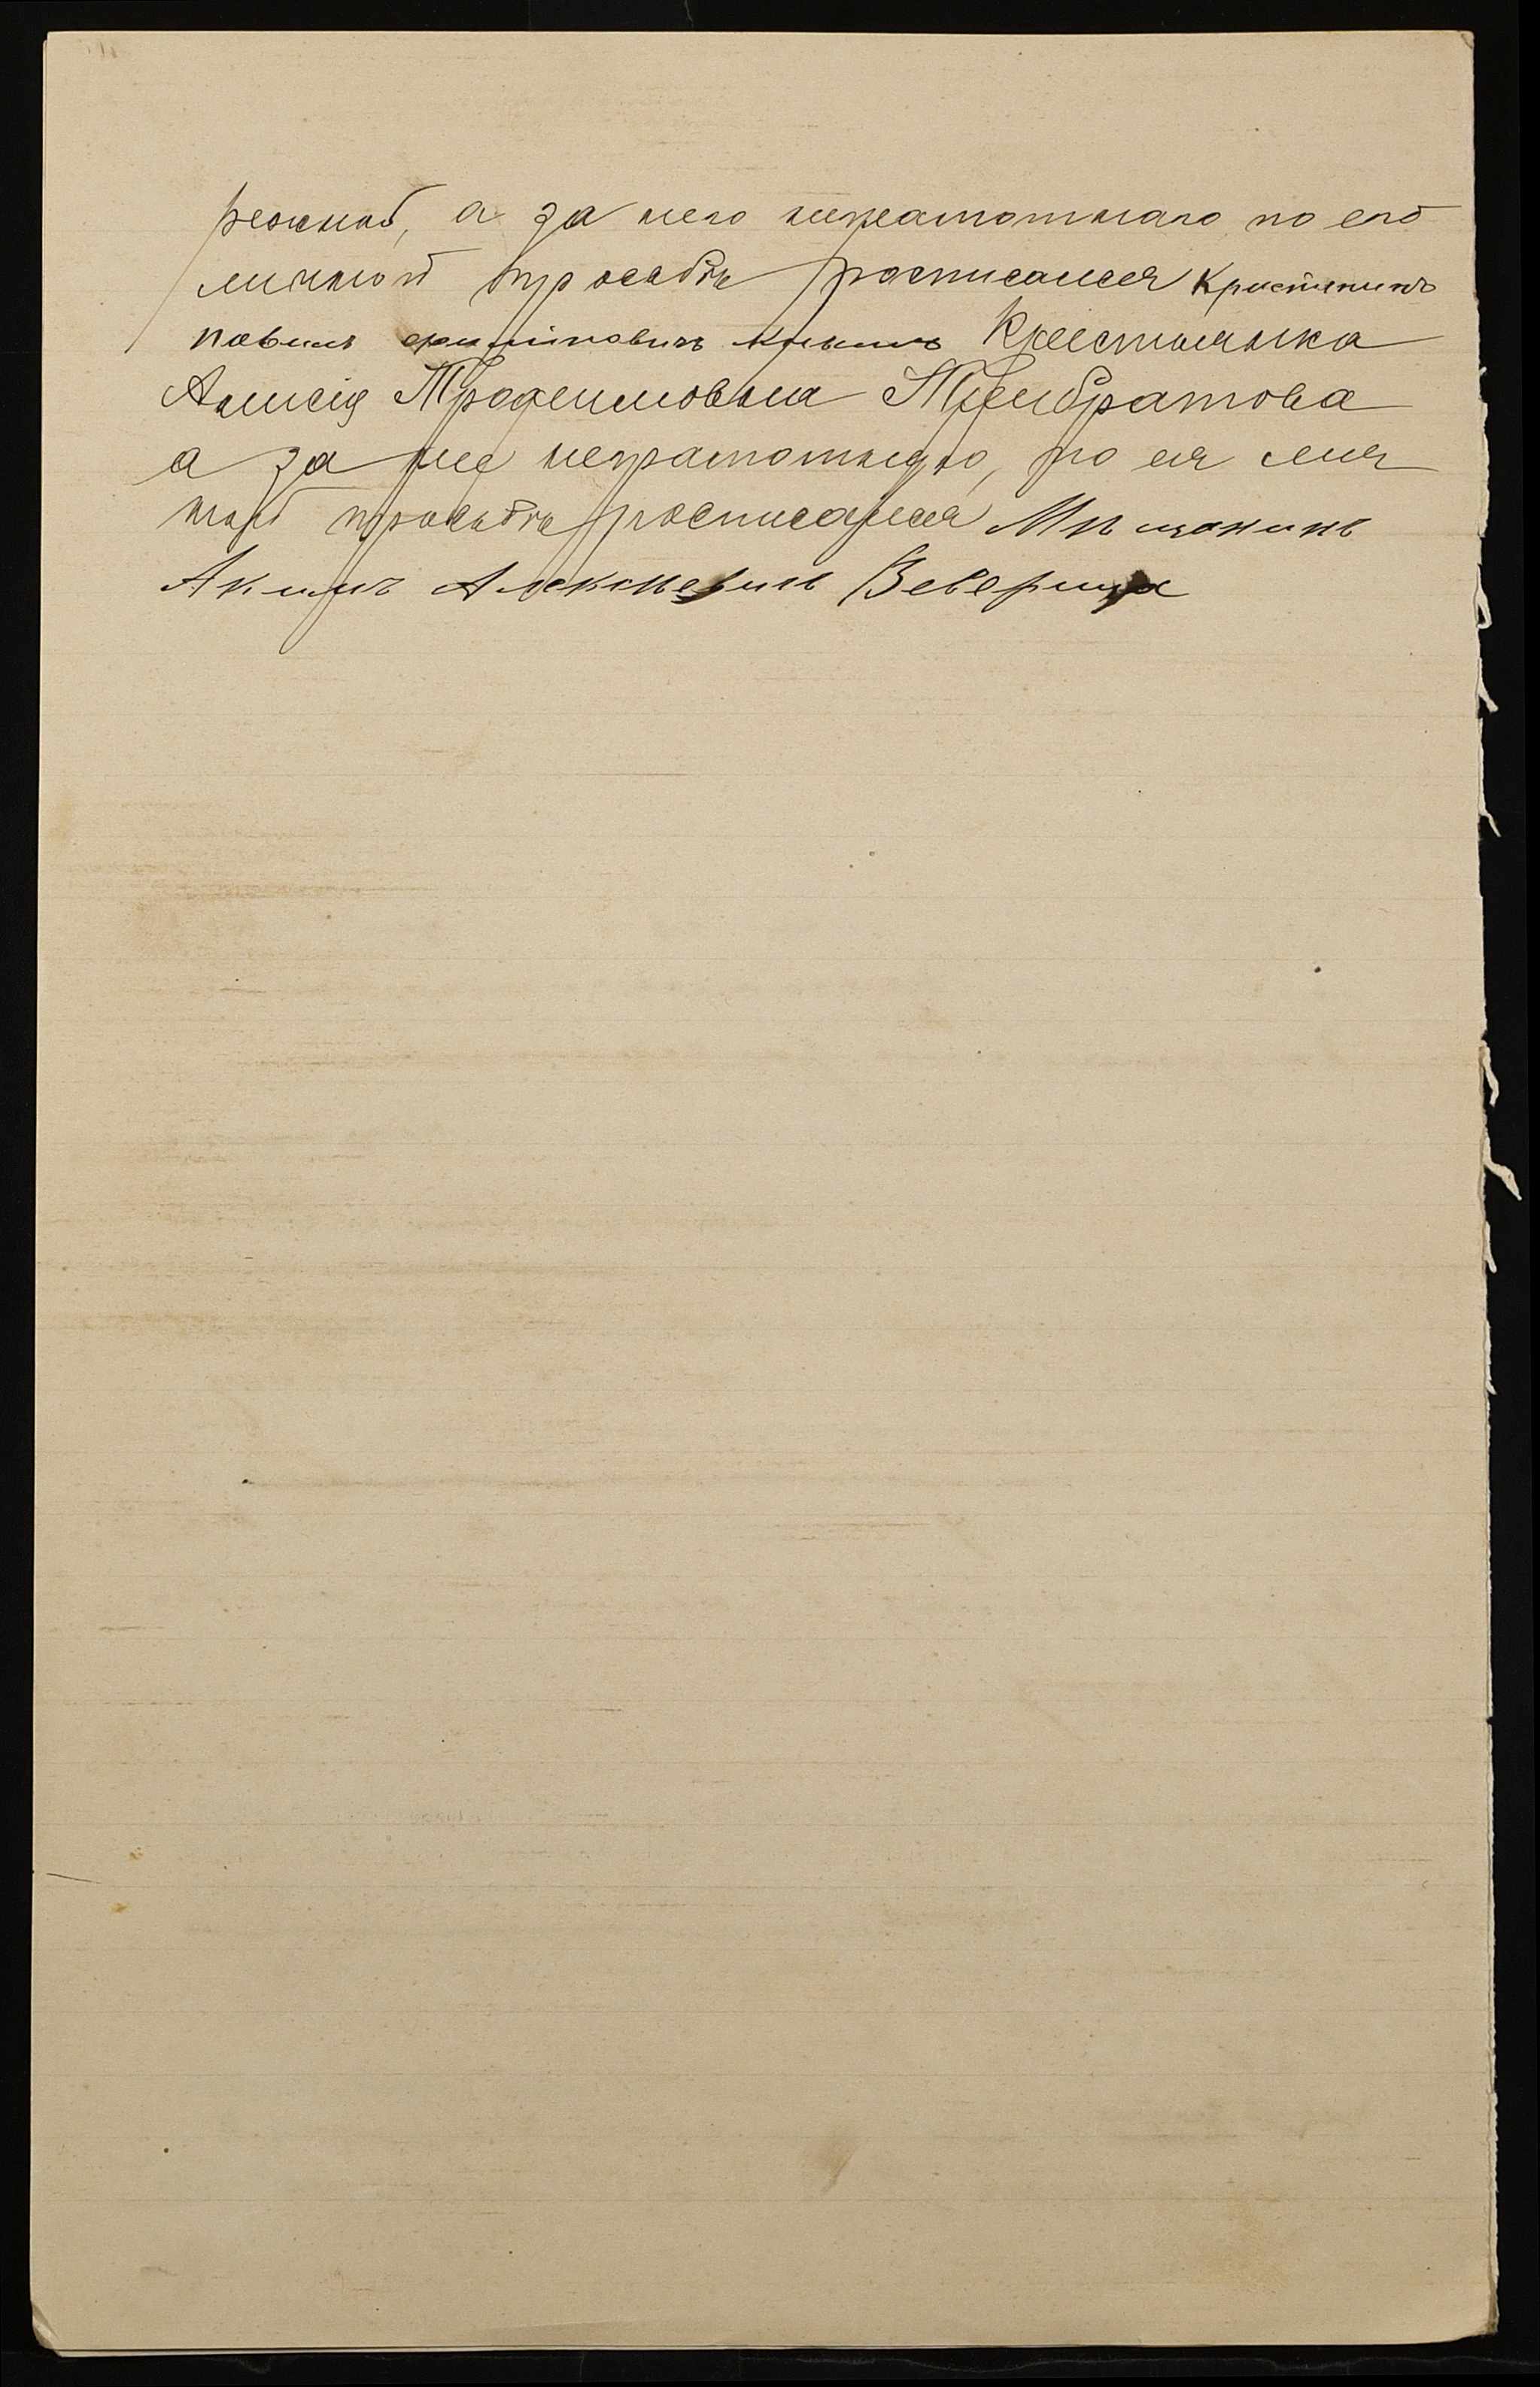 режной, а за него неграмотнаго по его
личной прозьбѣ росписался Кристянинъ
павилъ филиповичъ Крестьянка
Анисія Трофимовна Трембратова
а за нее неграмотную, по ея лич
ной прозьбѣ росписался Мѣщанинъ
Акимъ Алексѣевичъ Веверица